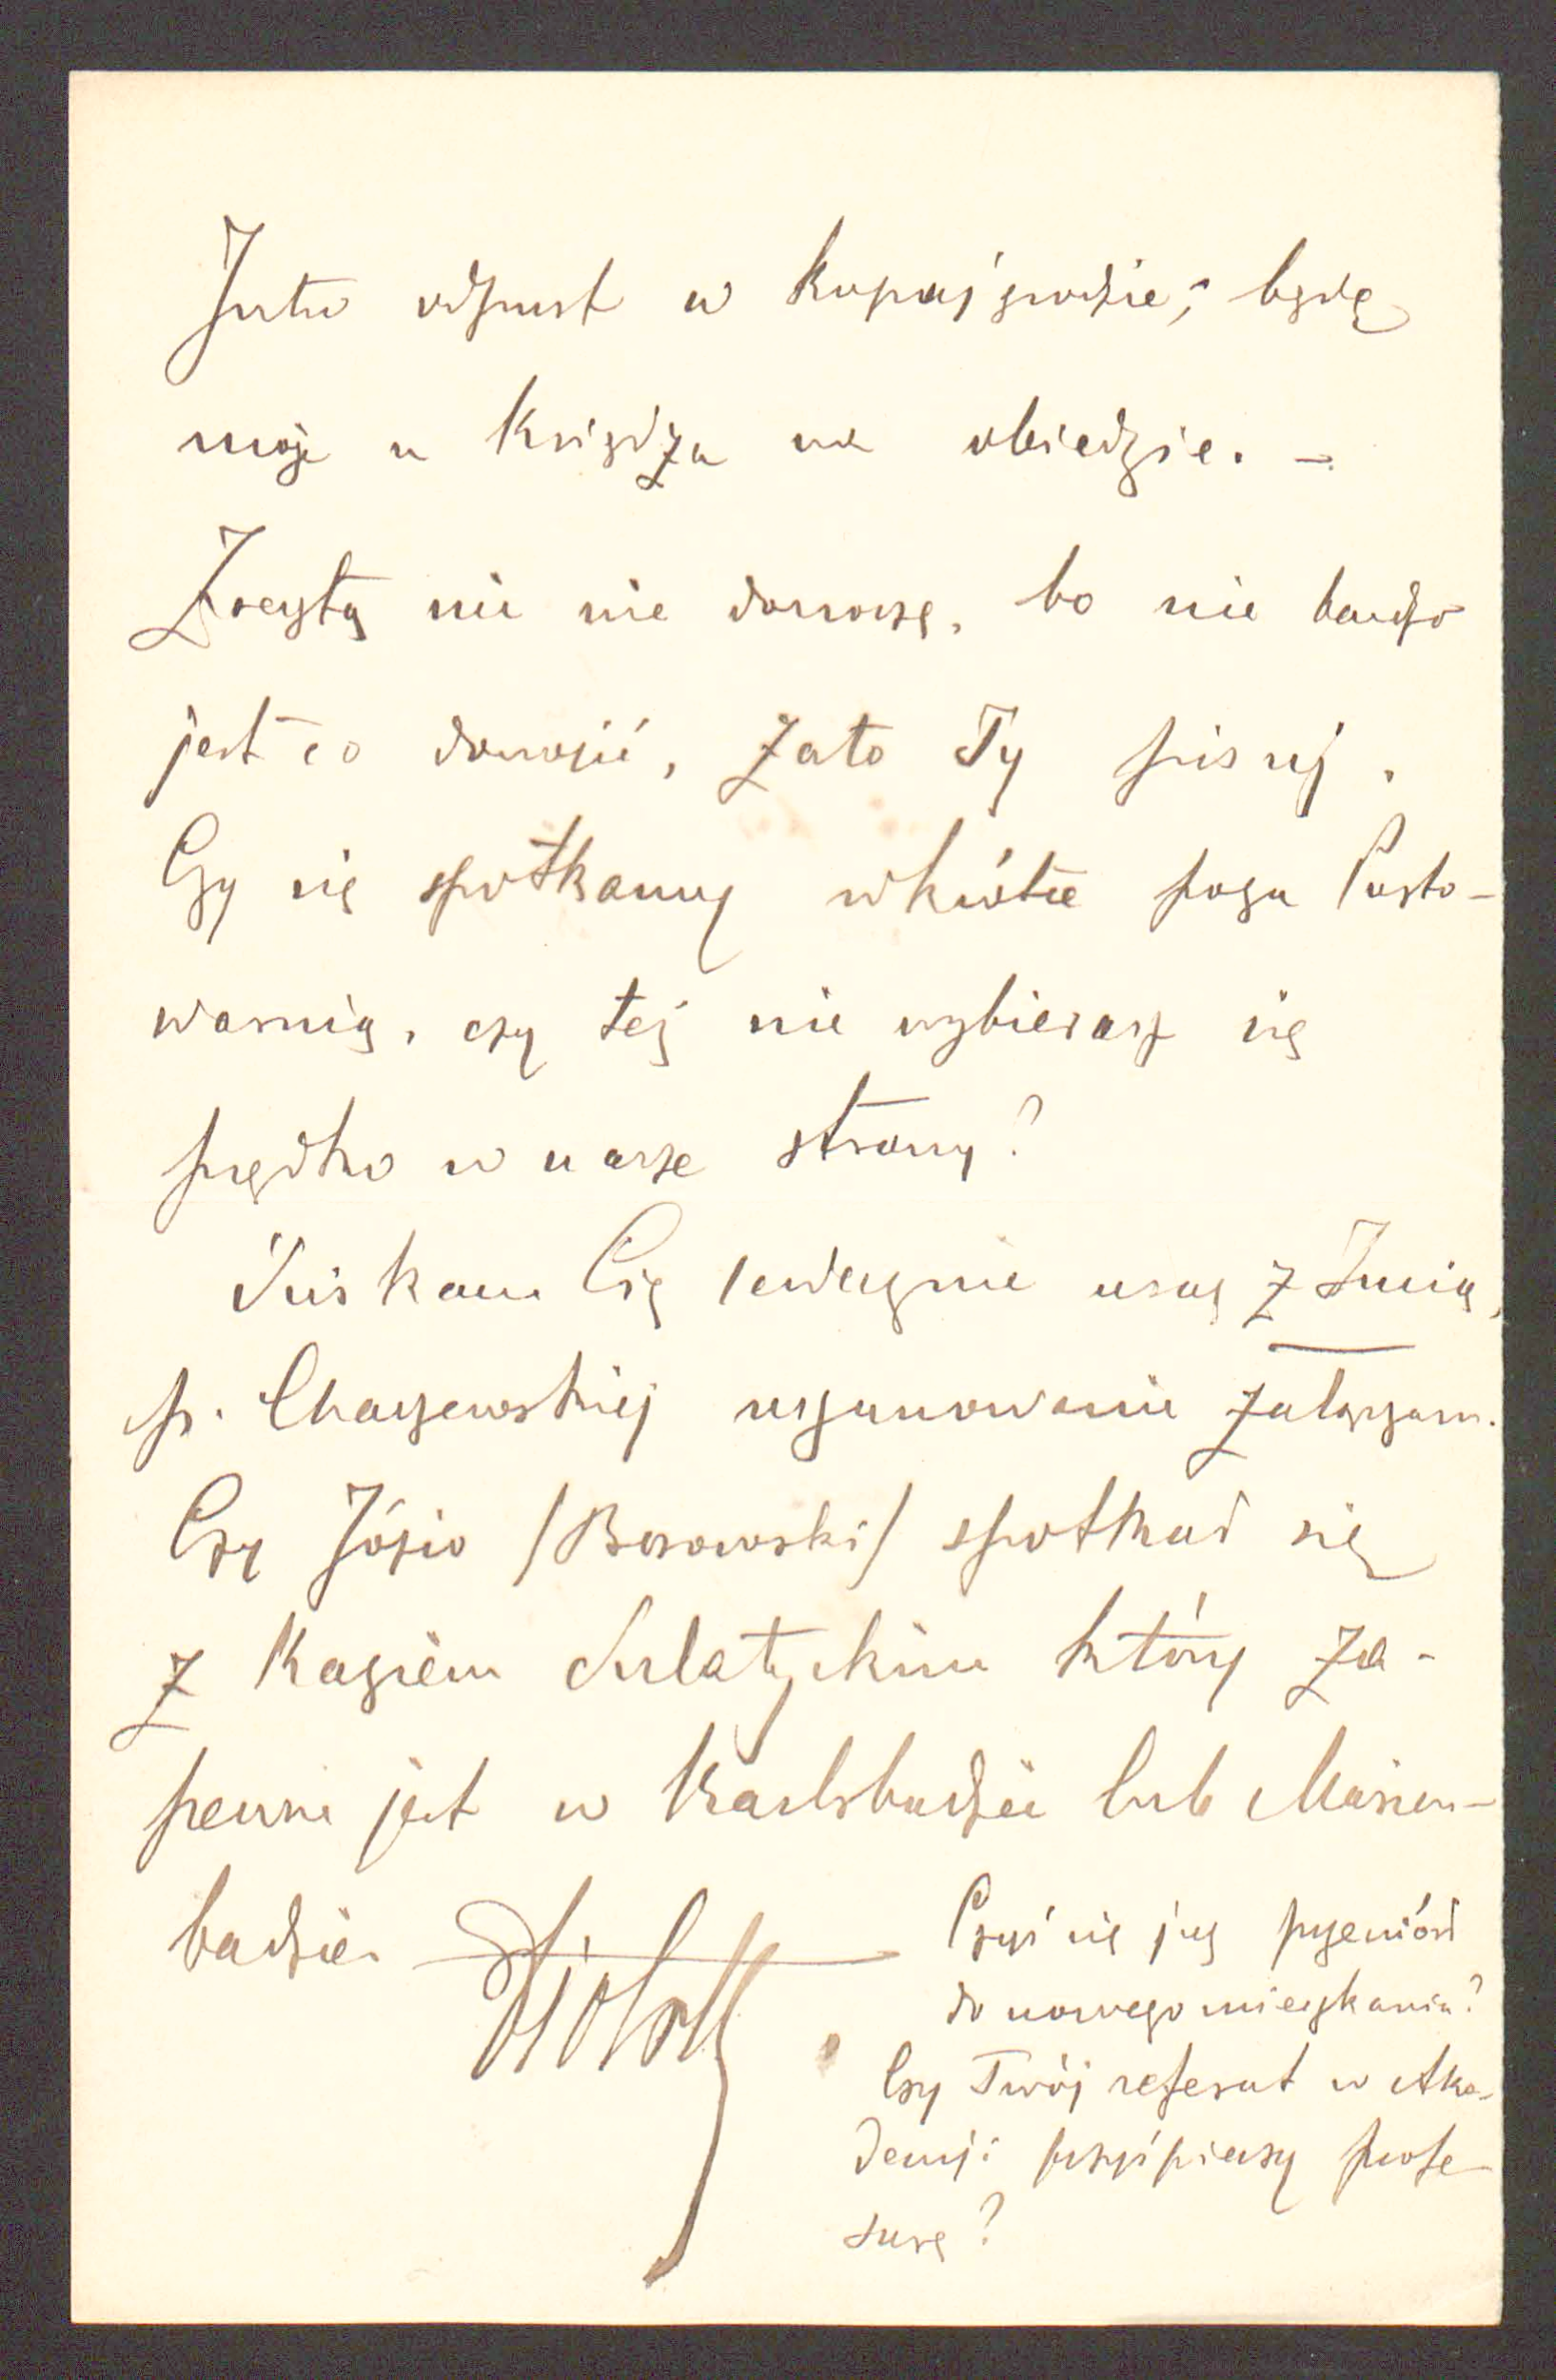 Jutro odpust w Kopajgrodzie; będę
może u Księdza na obiedzie. –
Zresztą nic nie donoszę, bo nie bardzo
jest co donosić, zato Ty pisuj.
Czy się spotkamy wkrótce poza Pusto-
warnią, czy też nie wybierasz się
prędko w nasze strony?
Ściskam Cię serdecznie wraz z Żmią,
p. Charzewskiej uszanowanie załączam.
Czy Józio /Borowski/ spotkał się
z Kaziem Sulatyckim który za-
pewne jest w Karlsbadzie lub Marien-
badzie.
Czyś się już przeniósł
do nowego mieszkania?
Czy Twój referat w Aka-
demji przyśpieszy profe-
surę?